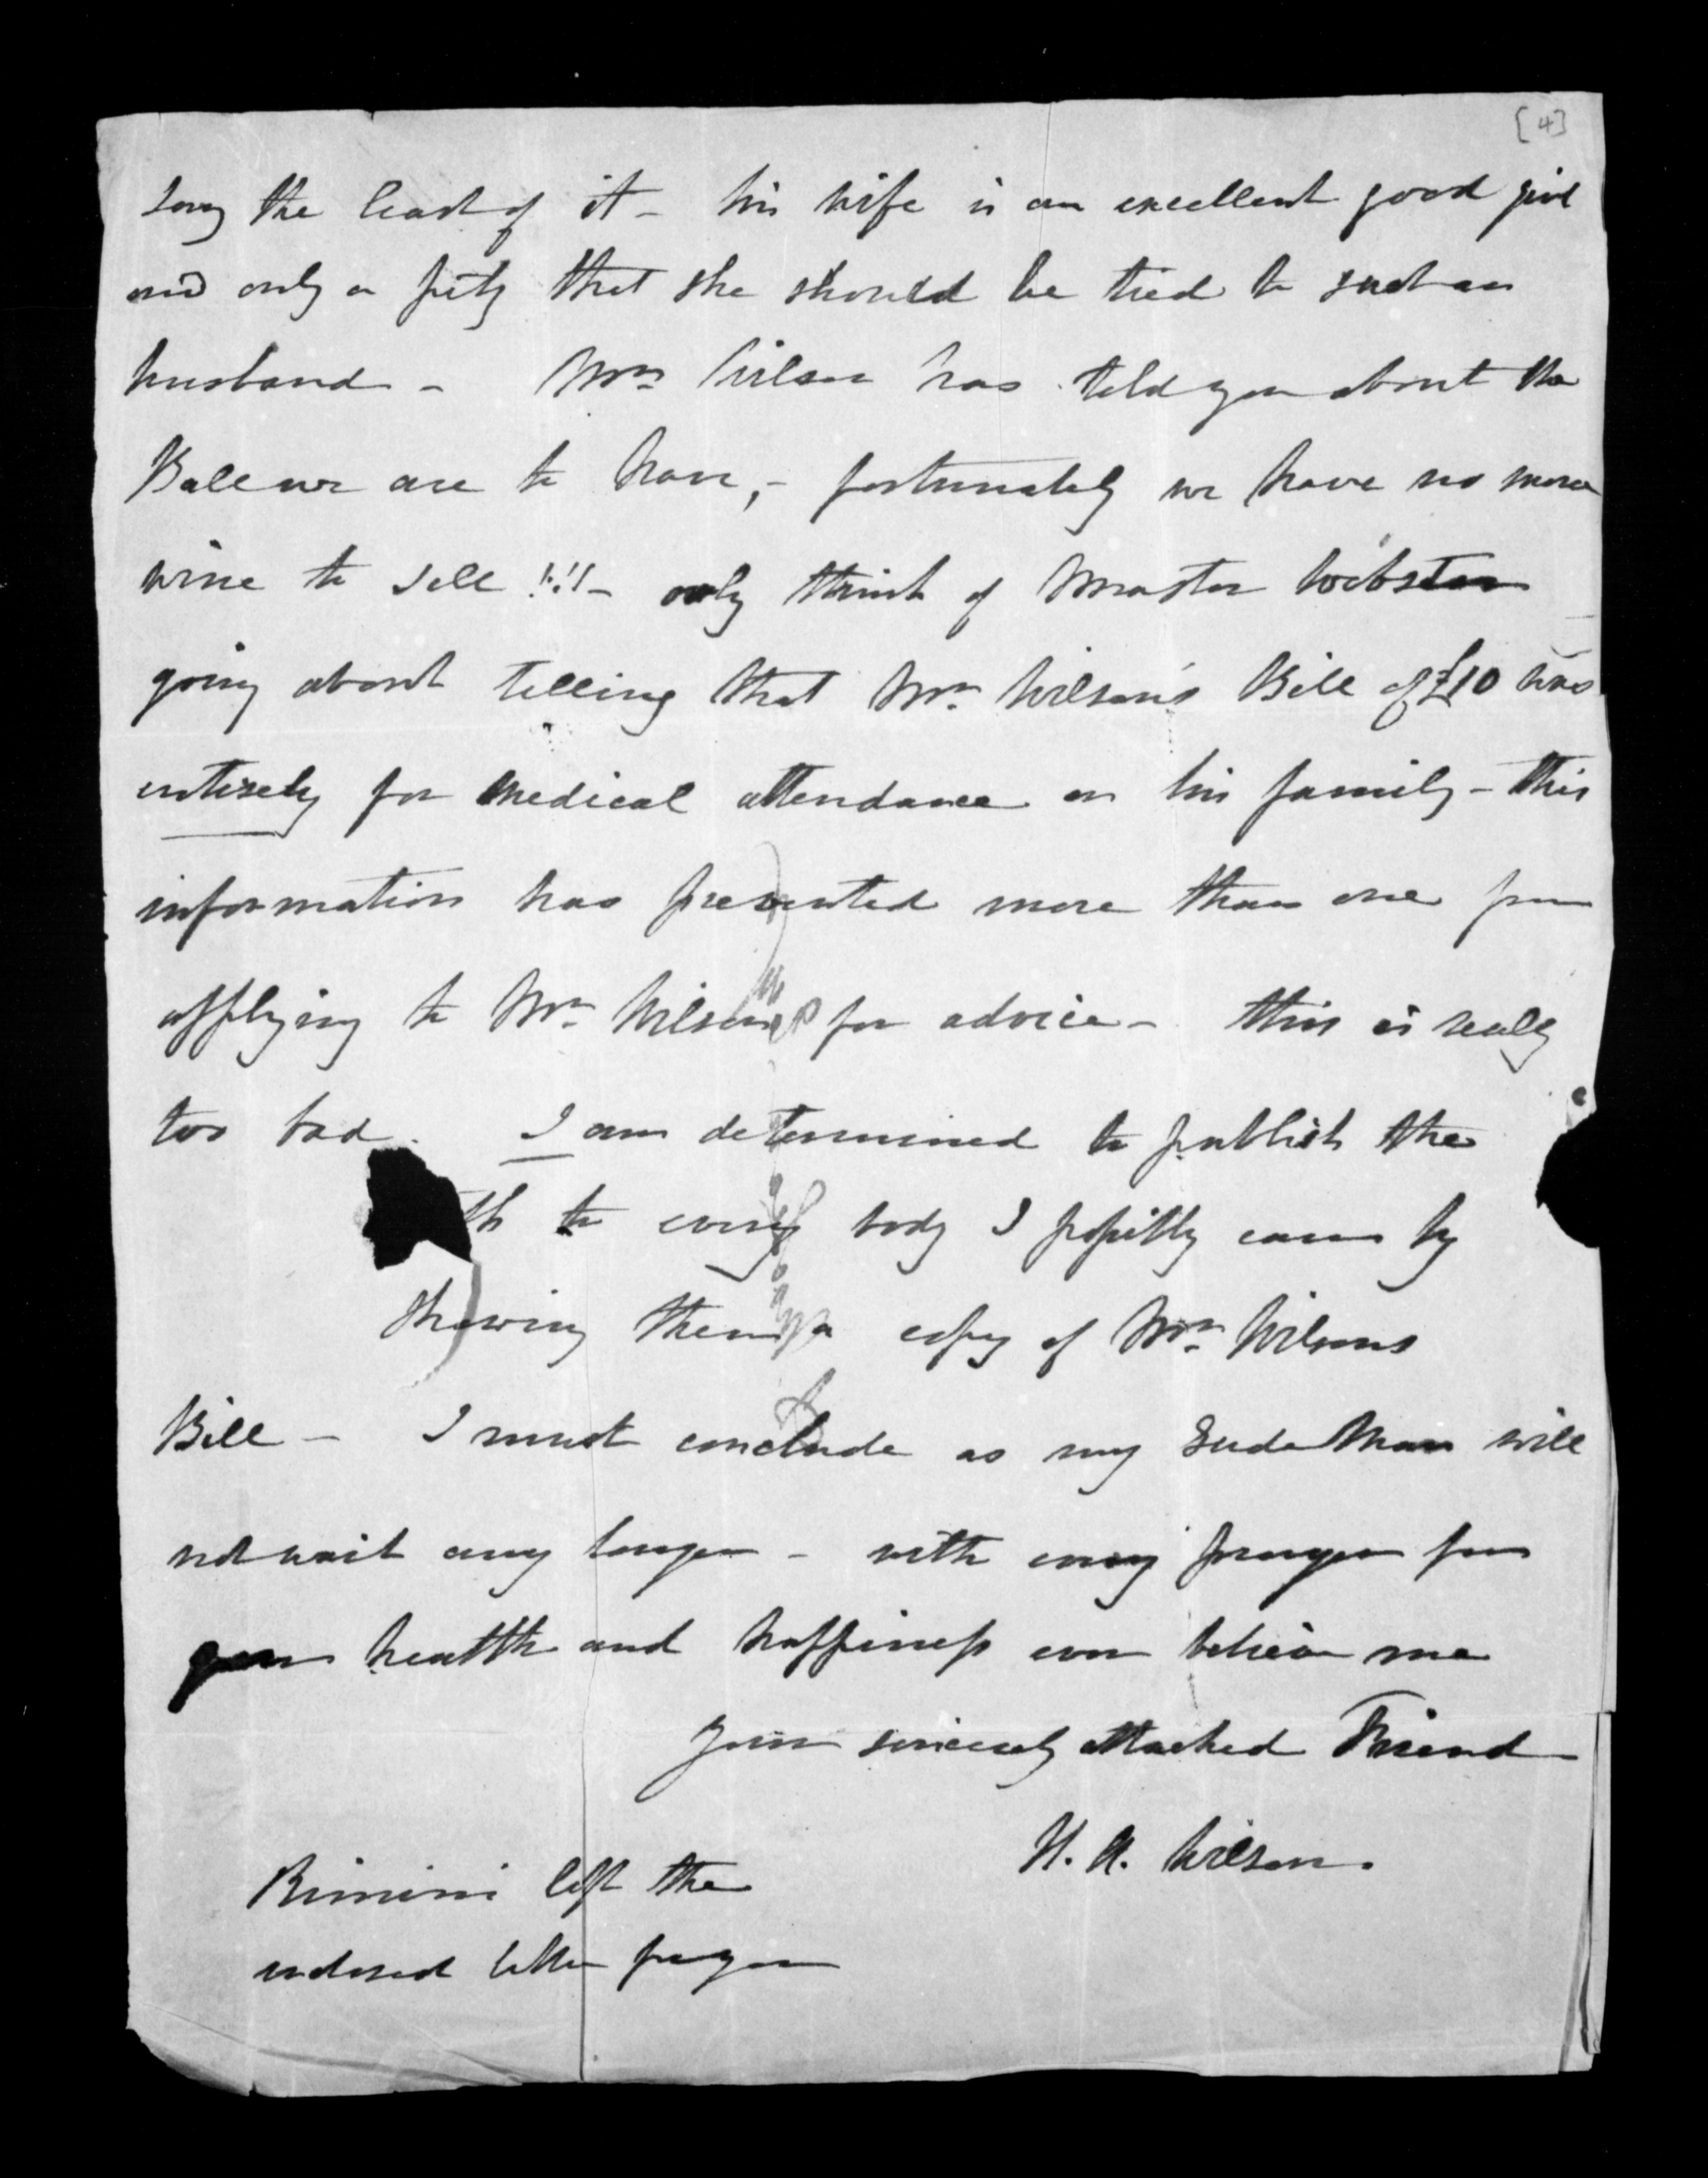 [4]
say the least of it – his wife is an excellent good girl
and only a pity that she should be tied to such an
husband – Mrs Wilson has told you about the
Ball we are to have, – fortunately we have no more
wine to sell !!!! – only think of Master Webster
going about telling that Mr. Wilson's Bill of £10 was
entirely for medical attendance on his family – this
information has prevented more than one from
applying to Mr. Wilson for advice – this is really
too bad. I am determined to publish the
th to every body I possibly can by
shewing them a copy of Mr. Wilsons
Bill – I must conclude as my man will
not wait any longer – with every prayer for
your health and happiness ever believe me
Your sincerely attached Friend
Wilson.
Rimini left the
enclosed letter for you